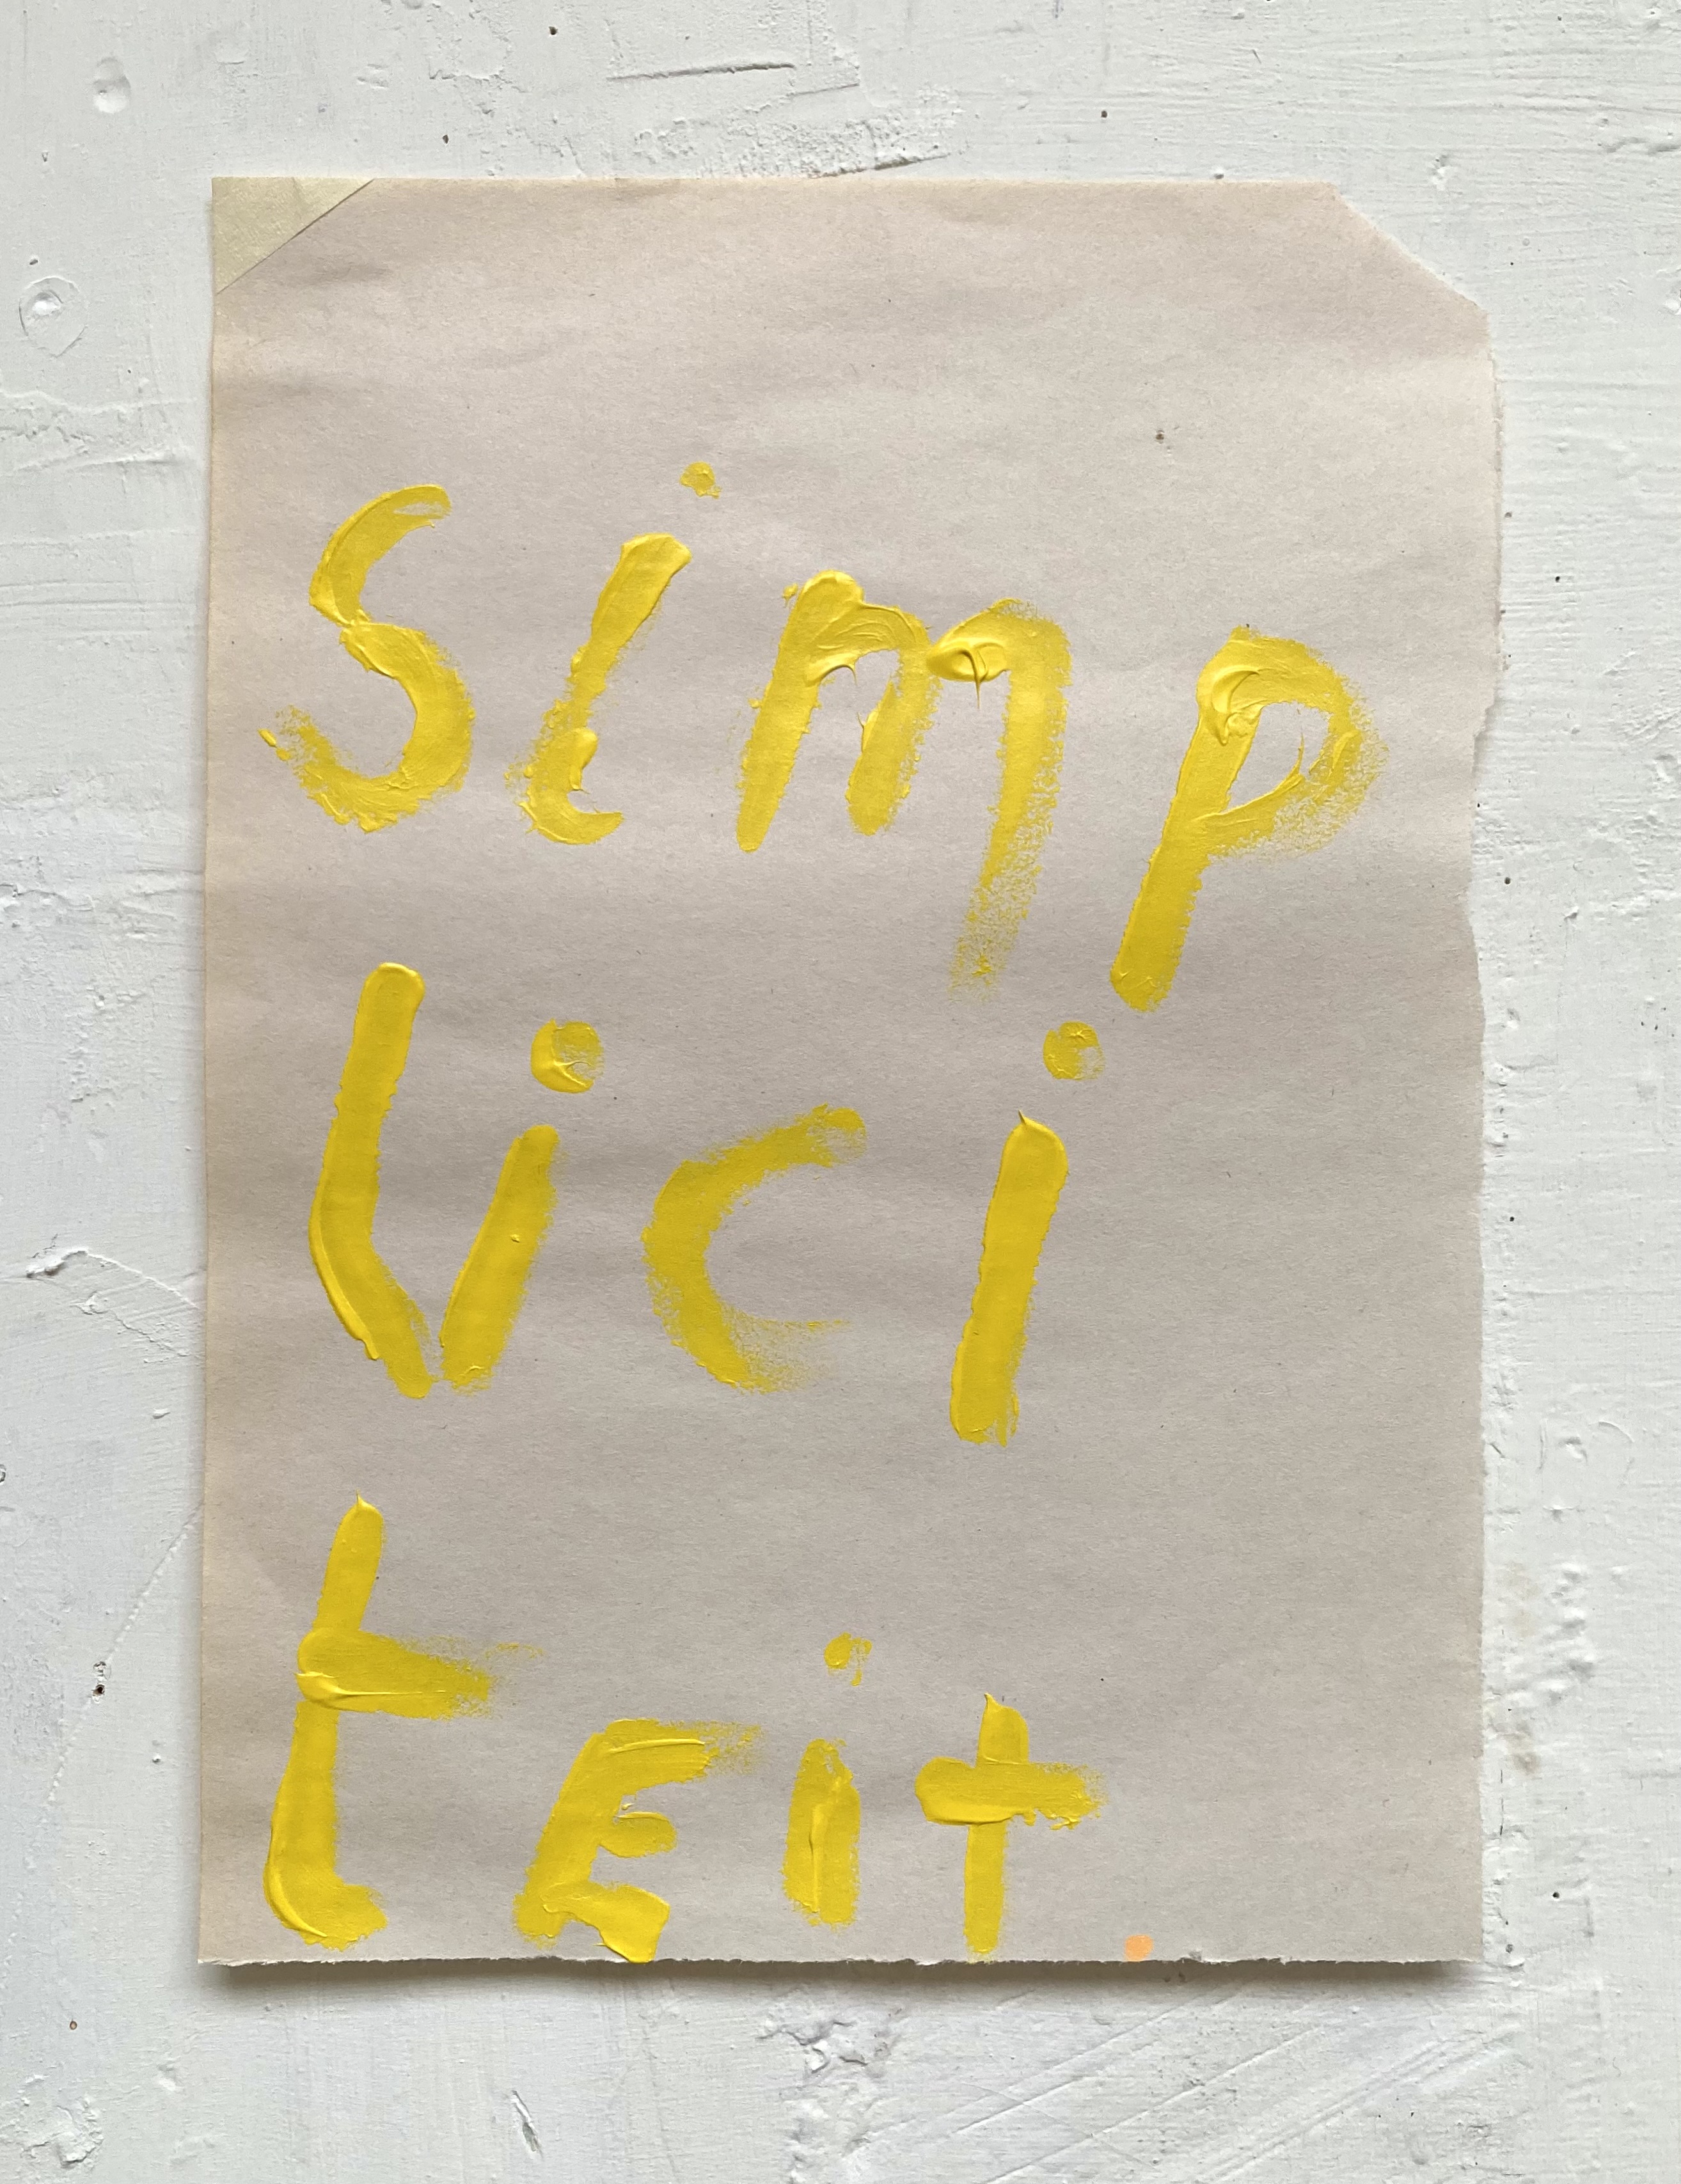 simp
lici
tEit.